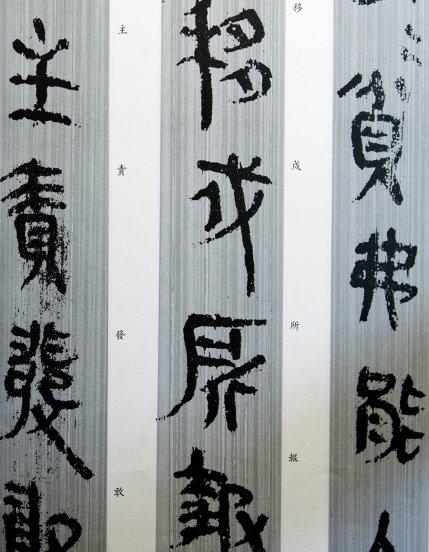 貧弗能入
移戍所報
移戍所報
主責發敢
主責發敢